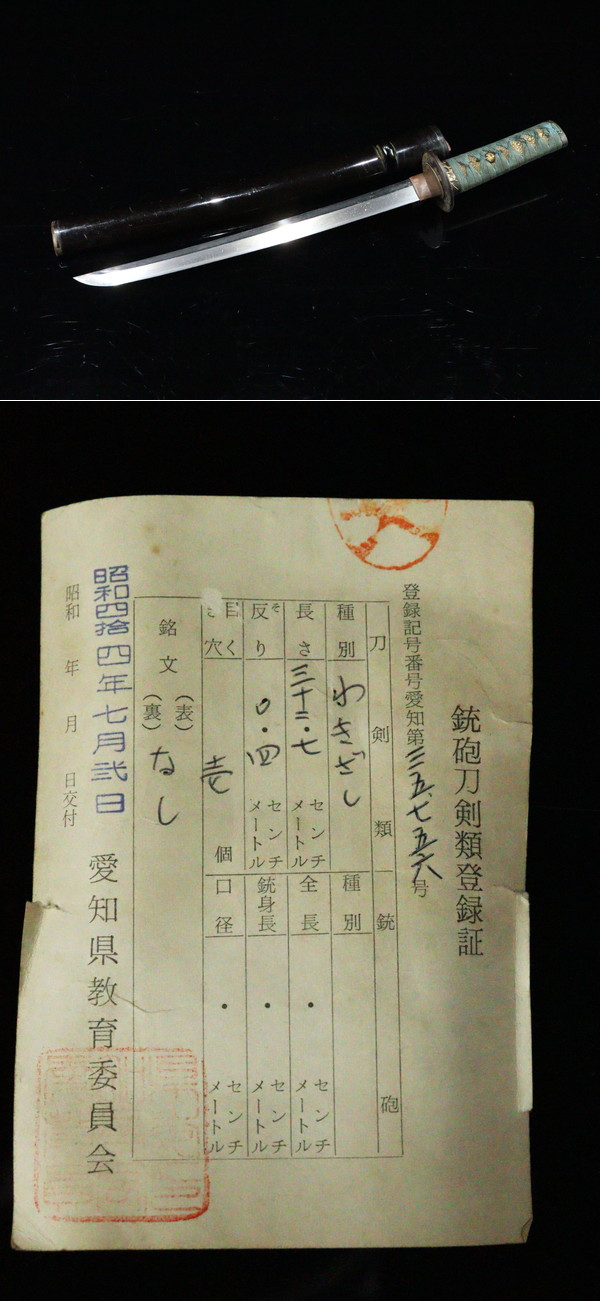 銃砲刀剣類登録証
登録記号番号愛知第三五七五六号
刀剣類
種別 わきざし
長さ 三十二・七 センチメートル
反り 〇・四 センチメートル
目くぎ穴 壱 個
銘文 (表) (裏) なし
銃砲
種別
全長 ・ センチメートル
銃身長 ・ センチメートル
口径 ・ センチメートル
昭和四拾四年七月弐日
昭和 年 月 日交付
愛知県教育委員会